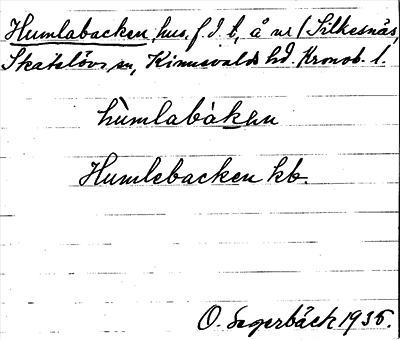 Humlabacken, hus, f. d. t, å nr 1 Silkesnäs,
Skatelövs sn, Kinnevalds hd. Kronob. l.
hùmlabàken
Humlebacken kb.
O. Segerbäck 1935.